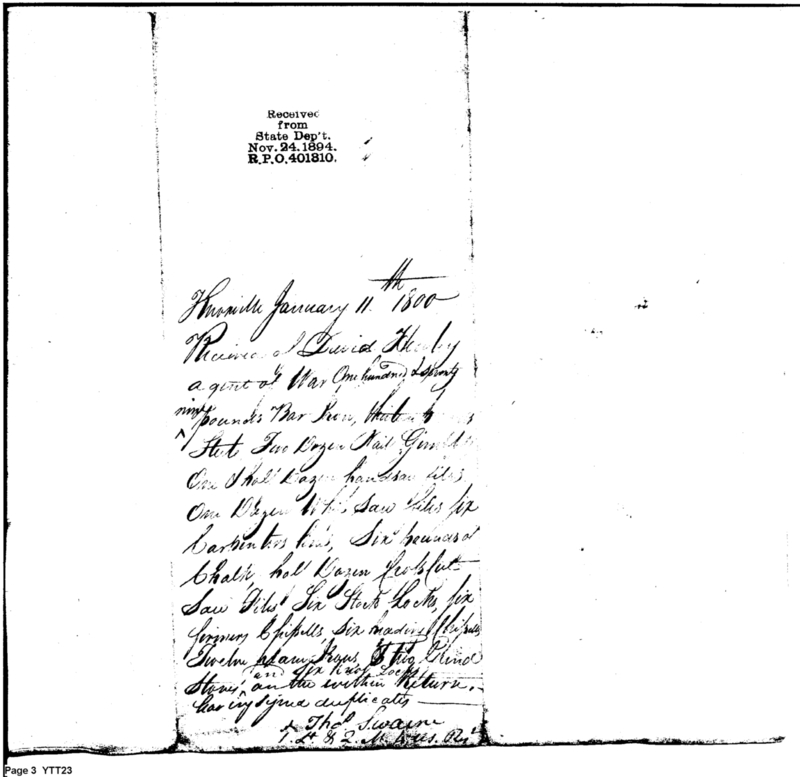 Received
from
State Dep't.
Nov. 24. 1894.
R.P.O. 401310.
Knoxville January 11th 1800
Received of David Henley
agent of War One hundred & seventy
nine pounds Bar Iron,
Steel, Two Dozen Nail Gimblets
One & half Dozen handsaw files
One Dozen Whip Saw files six
Carpenters lines, Six pounds of
Chalk, half Dozen Crosscut
Saw Files Six Stock Locks, six
firmers Chissells, six Chissells
Twelve Two Grind
Stones, and Six Knob Locks on the within Return.
having signed duplicates
Thos. Swaine
Lt & Q. M.
Page 3 YTT23